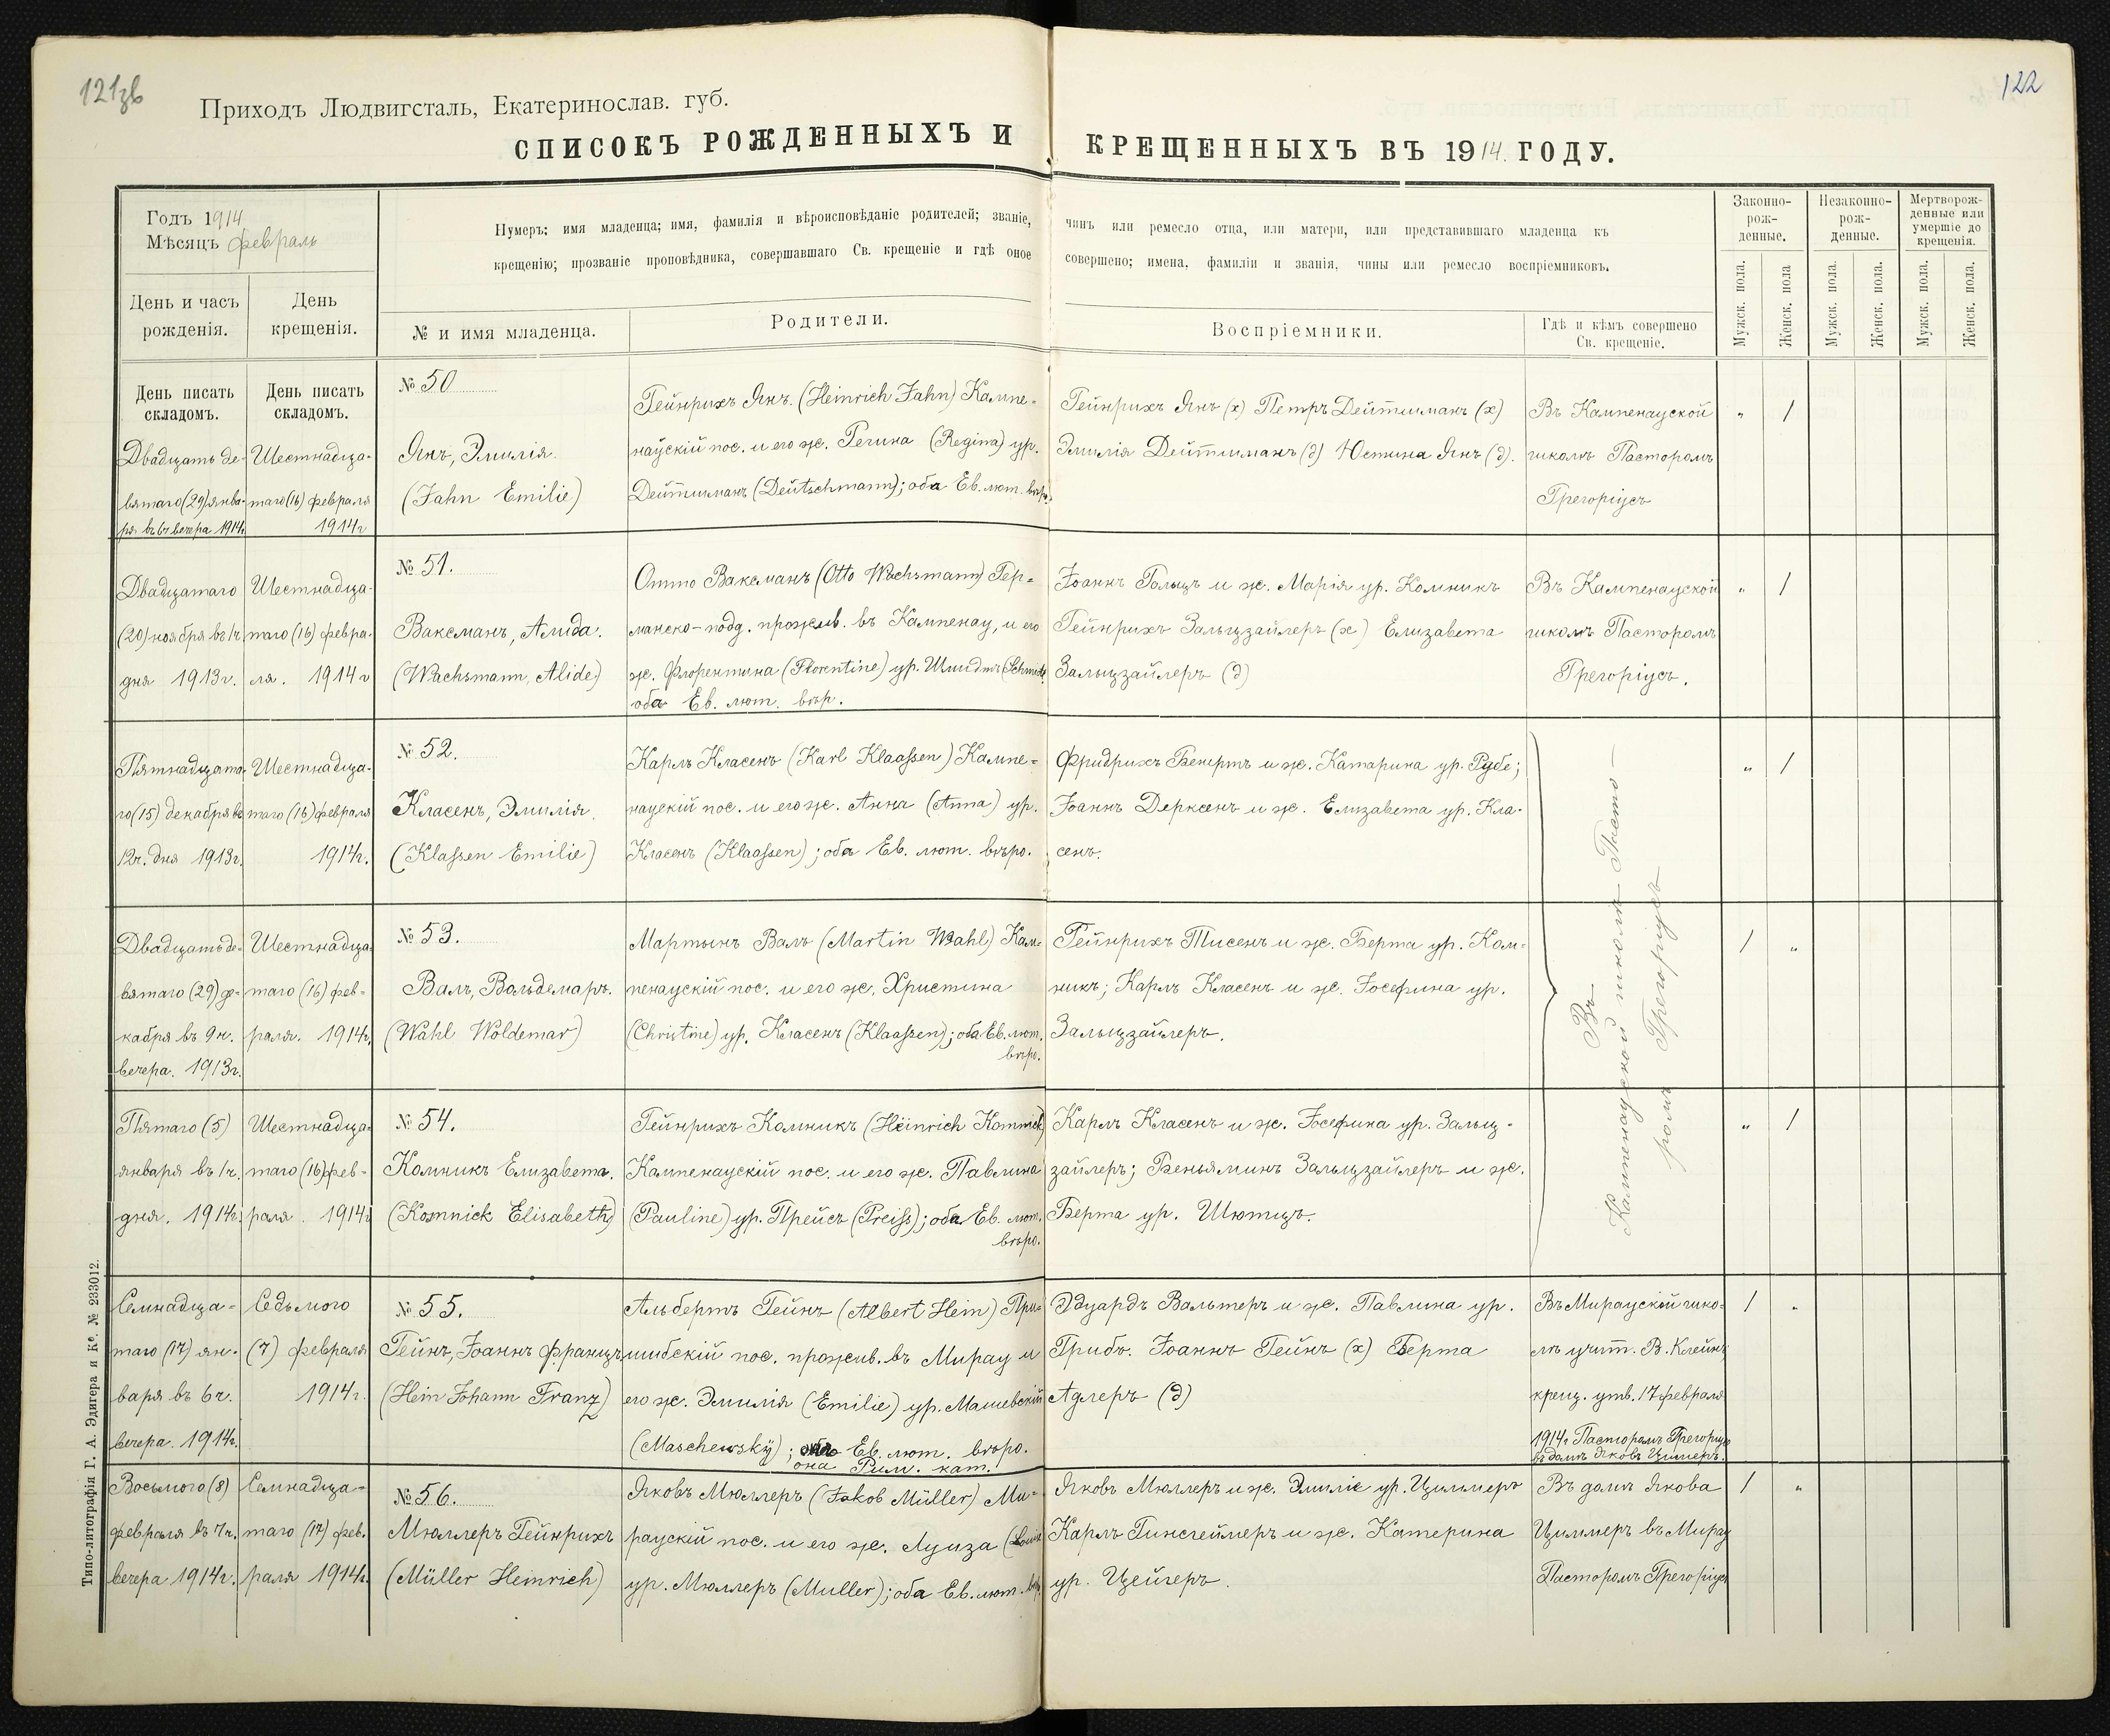 121зв
122
Приходъ Людвигсталь, Екатеринослав. губ.
СПИСОКЪ РОЖДЕННЫХЪ И КРЕЩЕННЫХЪ ВЪ 1914. ГОДУ.
Годъ 1914
Мѣсяцъ февраль
Нумеръ; имя младенца; имя, фамилія и вѣроисповѣданіе родителей; званіе, чинъ или ремесло отца, или матери, или представившаго младенца къ
крещенію; прозваніе проповѣдника, совершавшаго Св. крещеніе и гдѣ оное совершено; имена, фамиліи и званія, чины или ремесло воспріемниковъ.
Законно-
рож-
денные.
Незаконно-
рож-
денные.
Мертворож-
денные или
умершіе до
крещенія.
День и часъ
рожденія.
День
крещенія.
№ и имя младенца.
Родители.
Воспріемники.
Гдѣ и кѣмъ совершено
Св. крещеніе.
Мужск. пола.
Женск. пола
Мужск. пола.
Женск. пола.
Мужск. пола.
Женск. пола.
День писать
складомъ.
День писать
складомъ.
Двадцать де-
вятаго (29) янва-
ря въ 6ч вечера 1914г.
Шестнадца-
таго (16) февраля
1914г
№ 50
Янъ, Эмилія.
(Jahn Emilie)
Гейнрихъ Янъ (Heinrich Jahn) Кампе-
науский пос. и его ж. Регина (Regina) ур.
Дейтшманъ (Deutschmann); оба Ев. лют. вѣр.
Гейнрихъ Янъ (х) Петръ Дейтшманъ (х)
Эмилія Дейтшманъ (д) Юстина Янъ (д).
Въ Кампенауской
школѣ Пасторомъ
Грегоріусъ
„ 1
Двадцатаго
(20) ноября въ 1ч.
дня 1913г.
Шестнадца-
таго (16) февра-
ля. 1914г
№ 51.
Ваксманъ, Алида.
(Wachsmann, Alide)
Отто Ваксманъ (Otto Wachsmann) Гер-
манско-подд. прожив. въ Кампенау, и его
ж. Флорентина (Florentine) ур. Шмидтъ (Schmidt)
оба Ев. лют. вѣр.
Іоаннъ Гольцъ и ж. Марія ур. Комникъ
Гейнрихъ Зальцзайлеръ (х) Елизавета
Зальцзайлеръ (д)
Въ Кампенауской
школѣ Пасторомъ
Грегоріусъ.
„ 1
Пятнадцата-
го (15) декабря въ
12ч. дня 1913г.
Шестнадца-
таго (16) февраля
1914г.
№ 52.
Класенъ, Эмилія.
(Klassen Emilie)
Карлъ Класенъ (Karl Klaassen) Кампе-
науский пос. и его ж. Анна (Anna) ур.
Класенъ (Klaassen); оба Ев. лют. вѣро.
Фридрихъ Бенертъ и ж. Катарина ур. Рубе;
Іоаннъ Дерксенъ и ж. Елизавета ур. Кла-
сенъ.
„ 1
Въ
Кампенауской школѣ Пасто-
ромъ Грегоріусъ
Двадцать де-
вятаго (29) де-
кабря въ 9ч.
вечера. 1913г.
Шестнадца-
таго (16) фев-
раля. 1914г.
№ 53.
Валъ, Вольдемаръ.
(Wahl Woldemar)
Мартынъ Валъ (Martin Wahl) Кам-
пенауский пос. и его ж. Христина
(Christine) ур. Класенъ (Klaassen); оба Ев. лют.
вѣро.
Гейнрихъ Тисенъ и ж. Берта ур. Ком-
никъ; Карлъ Класенъ и ж. Іосефина ур.
Зальцзайлеръ.
1 „
Пятаго (5)
января въ 1ч.
дня. 1914г.
Шестнадца-
таго (16) фев-
раля. 1914г
№ 54.
Комникъ Елизавета.
(Komnick Elisabeth)
Гейнрихъ Комникъ (Heinrich Komnick)
Кампенауский пос. и его ж. Павлина
(Pauline) ур. Прейсъ (Preiss); оба Ев. лют.
вѣро.
Карлъ Класенъ и ж. Іосефина ур. Зальц-
зайлеръ; Беньяминъ Зальцзайлеръ и ж.
Берта ур. Шютцъ.
„ 1
Семнадца-
таго (17) ян-
варя въ 6ч.
вечера. 1914г.
Седьмого
(7) февраля
1914г.
№ 55.
Гейнъ, Іоаннъ Францъ
(Hein Johann Franz)
Альбертъ Гейнъ (Albert Hein) При-
шибскій пос. прожив. въ Мирау и
его ж. Эмилія (Emilie) ур. Машевскій
(Maschewsky); Ев. лют. вѣро.
она Рим. кат.
Эдуардъ Вальтеръ и ж. Павлина ур.
Грибъ. Іоаннъ Гейнъ (х) Берта
Адлеръ (д)
Въ Мирауской шко-
лѣ учит. В. Клейнъ
крещ. утв. 17 февраля
1914г Пасторомъ Грегоріусъ
въ домѣ Яковъ Циммеръ.
1 „
Восьмого (8)
февраля въ 7ч.
вечера 1914г.
Семнадца-
таго (17) фев.
раля 1914г.
№ 56.
Мюллеръ Гейнрихъ
(Müller Heinrich)
Яковъ Мюллеръ (Jakob Müller) Ми-
рауский пос. и его ж. Луиза
ур. Мюллеръ (Muller); оба Ев. лют. вѣр.
Яковъ Мюллеръ и ж. Эмиліе ур. Циммеръ
Карлъ Гинсгеймеръ и ж. Катерина
ур. Цейгеръ.
Въ домѣ Якова
Циммеръ въ Мирау
Пасторомъ Грегоріусъ
1 „
Типо-литографія Г. А. Эдигера и Ко. № 233012.